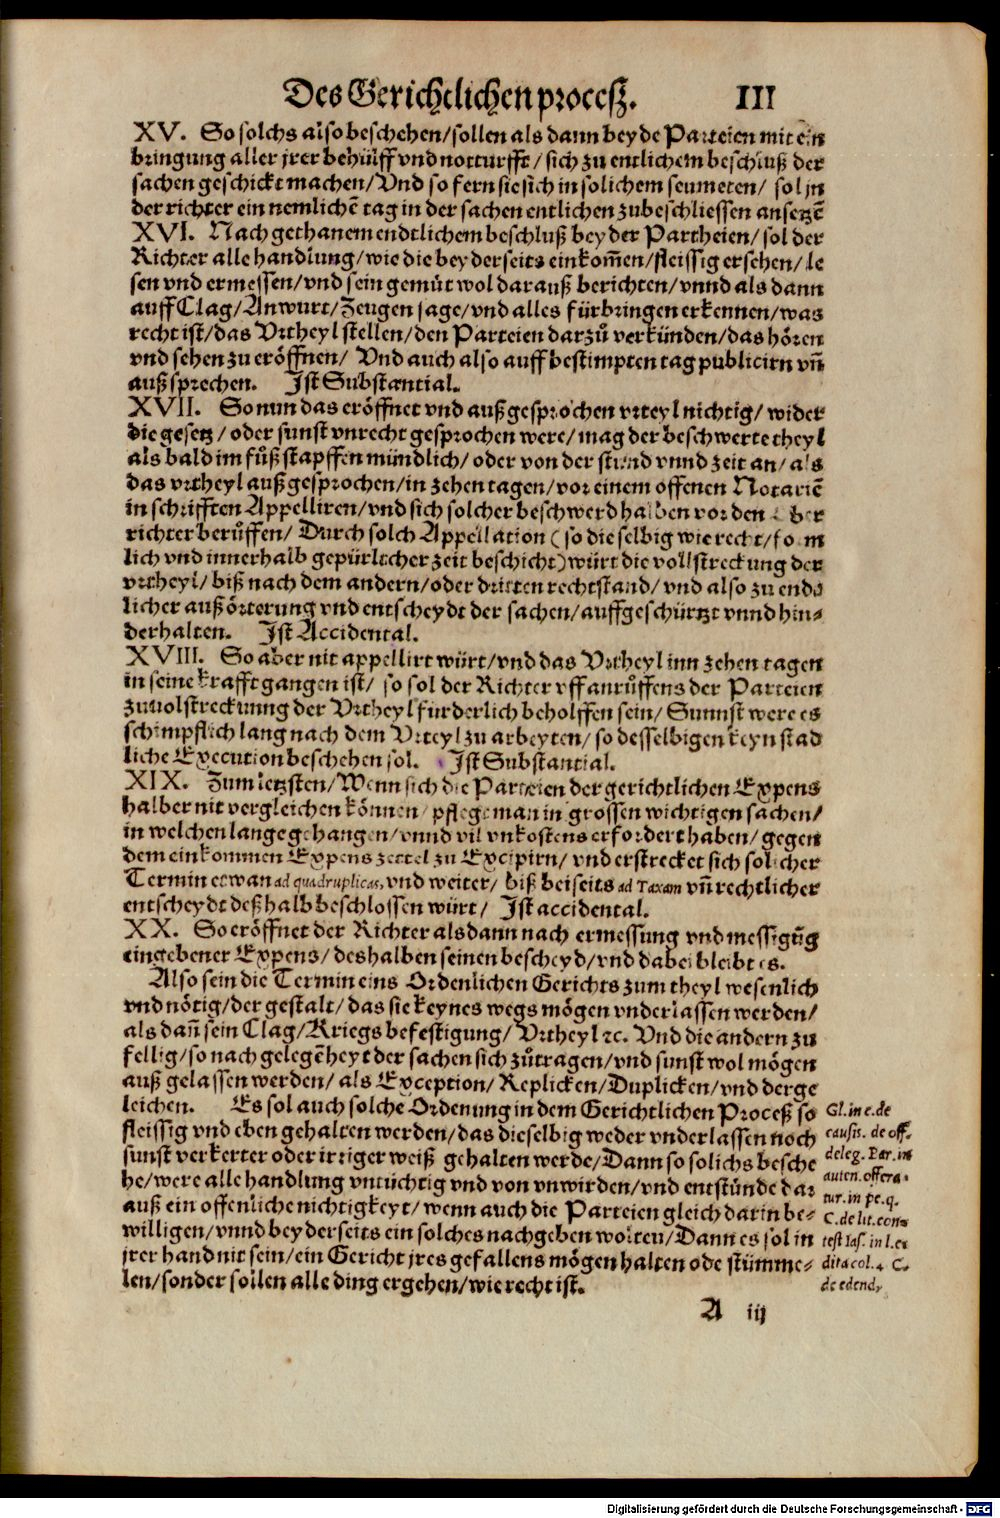 Des Gerichtlichen proceſz. III
XV. So solchs also beschehen/sollen als dann beyde Parteien mit ein
bringung aller jrer behülff vnd notturfft/sich zu entlichem beschluß der
sachen geschickt machen/Vnd so fern sie sich in solichem seumeten/ sol jn
der richter ein nemlichẽ tag in der sachen entlichen zubeschliessen ansetzẽ
XVI. Nach gethanem endtlichem beschluß beyder Partheien/ sol der
Richter alle handlung/wie die beyderseits einkom̃en/fleissig ersehen/le
sen vnd ermessen/vnd sein gemüt wol darauß berichten/vnnd als dann
auff Clag/Antwurt/Zeugen sage/vnd alles fürbringen erkennen/was
recht ist/das Vrtheyl stellen/den Parteien darzů verkünden/das hören
vnd sehen zu eröffnen/ Vnd auch also auff bestimpten tag publicirn vñ
auß sprechen. Ist Substantial.
XVII. So nun das eröffnet vnd auß gesprochen vrteyl nichtig/ wider
die gesetz/ oder sunst vnrecht gesprochen were/mag der beschwerte theyl
als bald im fůßstapffen mündlich/ oder von der stund vnnd zeit an/ als
das vrtheyl auß gesprochen/in zehen tagen/vor einem offenen Notariẽ
in schrifften Appelliren/vnd sich solcher beschwerd halben vor den ober
richter berůffen/ Durch solch Appellation (so die selbig wie recht/form
lich vnd innerhalb gepürlicher zeit beschicht) würt die vollstreckung der
vrtheyl/ biß nach dem andern/oder dritten rechtstand/ vnd also zu endt
licher außörterung vnd entscheydt der sachen/auffgeschürtzt vnnd hin-
derhalten. Ist Accidental.
XVIII. So aber nit appellirt würt/vnd das Vrtheyl inn zehen tagen
in seine krafft gangen ist/ so sol der Richter vff anrůffens der Parteien
zuuolstreckunng der Vrtheyl fürderlich beholffen sein/ Sunnst were es
schimpflich lang nach dem Vrteyl zu arbeyten/so desselbigen keyn stad
liche Execution beschehen sol. Ist Substantial.
XIX. Zum letzsten/Wenn sich die Parteien der gerichtlichen Expens
halber nit vergleichen können/ pflegt man in grossen wichtigen sachen/
in welchen lange gehangen/vnnd vil vnkostens erfordert haben/gegen
dem einkommen Expens zettel zu Excipirn/ vnd erstrecket sich solicher
Termin etwan ad quadruplicas, vnd weiter/ biß beiseits ad Taxam vñ rechtlicher
entscheydt deßhalb beschlossen würt/ Ist accidental.
XX. So eröffnet der Richter alsdann nach ermessung vnd messigũg
eingebener Expens/deshalben seinen bescheyd/vnd dabei bleibt es.
Also sein die Termin eins Ordenlichen Gerichts zum theyl wesenlich
vnd nötig/der gestalt/das sie keynes wegs mögen vnderlassen werden/
als dañ sein Clag/Kriegs befestigung/ Vrtheyl ꝛc. Vnd die andern zu
fellig/so nach gelegẽheyt der sachen sich zůtragen/vnd sunst wol mögen
auß gelassen werden/ als Exception/Replicken/Duplicken/vnd derge
leichen. Es sol auch solche Ordenung in dem Gerichtlichen Proceß so
fleissig vnd eben gehalten werden/das dieselbig weder vnderlassen noch
sunst verkerter oder irriger weiß gehalten werde/Dann so solichs besche
he/were alle handlung vntüchtig vnd von vnwirden/vnd entstünde dar
auß ein offenliche nichtigkeyt/wenn auch die Parteien gleich darin be-
willigen/vnnd beyderseits ein solches nachgeben wolten/Dann es sol in
jrer hand nit sein/ein Gericht jres gefallens mögen halten ode stümme-
len/sonder sollen alle ding ergehen/wie recht ist.
Gl. in c. de
causis. de off.
deleg. Bar. in
auten. offera-
tur. in pe. q.
C. de lit. con-
test Ias. in l. e
dita col. 4 C.
de edend,
A iij
Digitalisierung gefördert durch die Deutsche Forschungsgemeinschaft - DFG